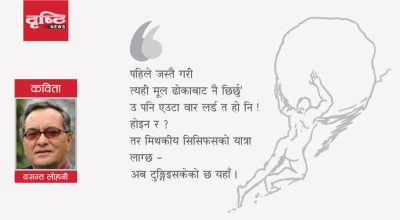 दृष्टि
NEWS
कविता
वसन्त लोहनी
पहिले जस्तै गरी
त्यही मूल ढोकाबाट नै छिर्छु'
उ पनि एउटा वार लर्ड त हो नि !
होइन र ?
तर मिथकीय सिसिफसको यात्रा
लाग्छ –
अब टुङ्गिइसकेको छ यहाँ ।